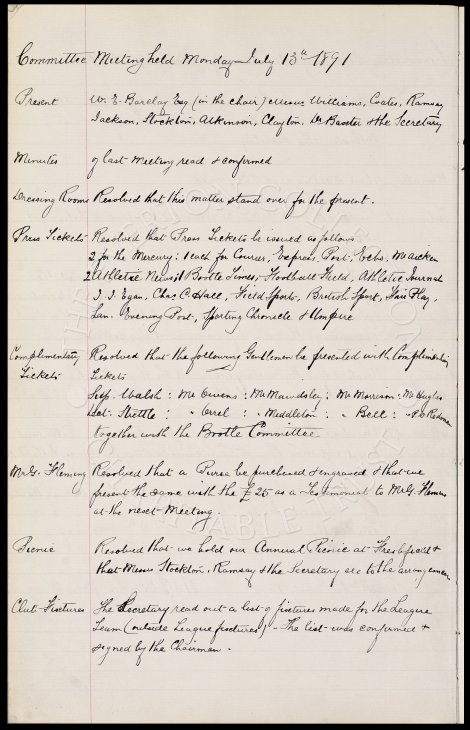 Committee Meeting held Monday July 13th 1891
Present W. E. Barclay Esq (in the chair) Messrs Williams, Coates, Ramsay
Jackson, Stockton, Atkinson, Clayton, Dr Baxter & the Secretary
Minutes of last Meeting read & confirmed
Dressing Rooms Resolved that this matter stand over for the present.
Press Tickets Resolved that Press Tickets be issued as follows
2 for the Mercury: 1 each for Courier, Express, Post, Echo,
2 Athletic News, 1 Bootle Times, Football Field, Athletic Journal
J. J. Egan, Chas C. Hall, Field Sports, British Sport, Fair Play,
Lan. Evening Post, Sporting Chronicle & Umpire
Complimentary Resolved that the following Gentlemen be presented with Complimentary
Tickets Tickets
Walsh: Mr Owens: Mr Mawdsley: Mr Morrison: Mr Hughes
" " Middleton: " Bell: "
together with the Bootle Committee
Mr G. Fleming Resolved that a Purse be purchased & engraved & that we
present the same with the £25 as a Testimonial to Mr G. Fleming
at the next Meeting.
Picnic Resolved that we hold our Annual Picnic at Freshfield &
that Messrs Stockton, Ramsay & the Secretary see to the arrangements
Club Fixtures The Secretary read out a list of fixtures made for the League
Team (outside League fixtures) - The list was confirmed &
signed by the Chairman.